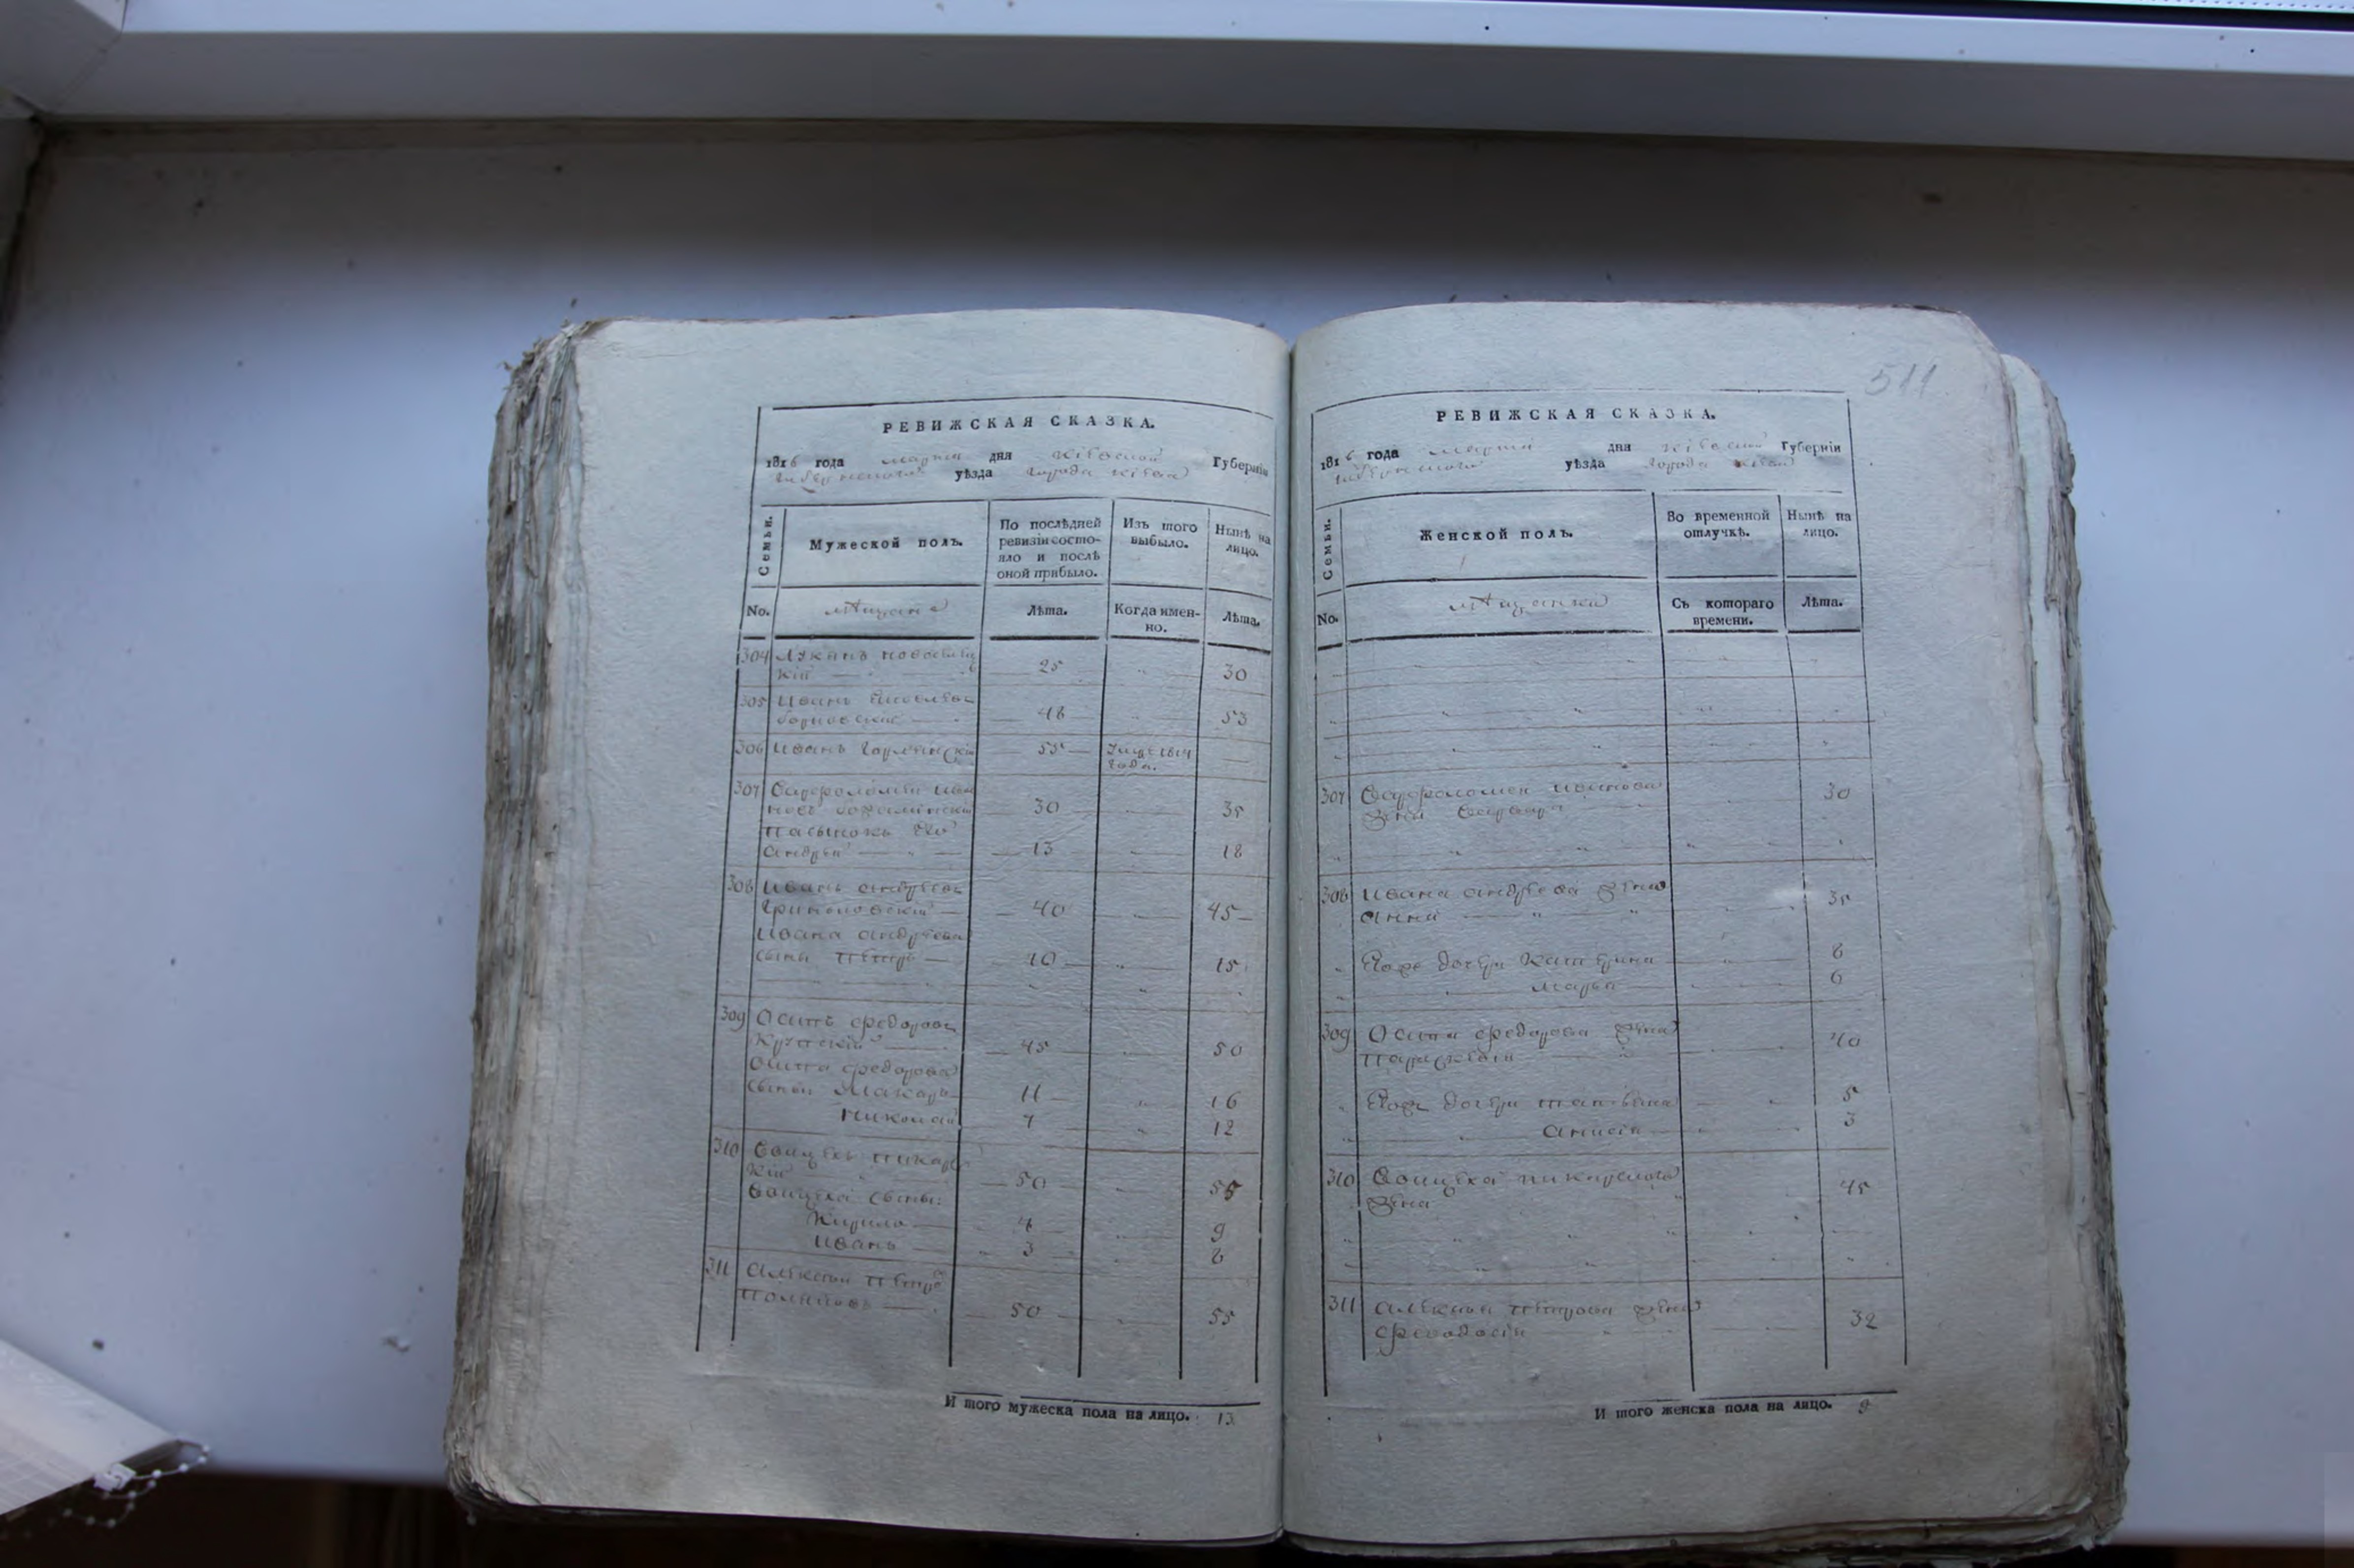 511
РЕВИЖСКАЯ СКАЗКА.
1816 года марта дня Кіевской Губерніи
Губернского уѣзда города Кіева
Семьи. Мужеской полъ. По послѣдней ревизіи состояло и послѣ оной прибыло. Изъ того выбыло. Нынѣ на лицо.
No. мѣщане Лѣта. Когда именно. Лѣта.
304 Лукаянъ
кій 25 30
305 Иванъ
48 53
306 Иванъ 55 1814
года.
307 Варфоломей Ива
новъ 30 35
пасынокъ его
андрей 13 18
308 Иванъ андреевъ
40 45
Ивана андреева
сынъ петръ 10 15
309 Осипъ федоровъ
Крупскій 45 50
Осипа федорова
сыновья Макаръ 11 16
Николай 7 12
310 Войцехъ пикарс
кій 50 55
Войцеха сыны:
Кирило 4 9
Иванъ 3 8
311 алексей петровъ
50 55
И того мужеска пола на лицо. 13
РЕВИЖСКАЯ СКАЗКА.
1816 года марта дня Кіевской Губерніи
Губернского уѣзда города Кіева
Семьи. Женской полъ. Во временной отлучкѣ. Нынѣ на лицо.
No. мѣщанки Съ котораго времени. Лѣта.
307 Варфоломея иванова 30
жена Варвара
308 Ивана андреева жена 35
анна
Ихъ дочери Катерина 8
Марья 6
309 Осипа федорова жена 40
параскевія
Ихъ дочери татьяна 5
анисія 3
310 Войцеха пикарского 45
жена
311 алексея петрова жена 32
феодосія
И того женска пола на лицо. 9